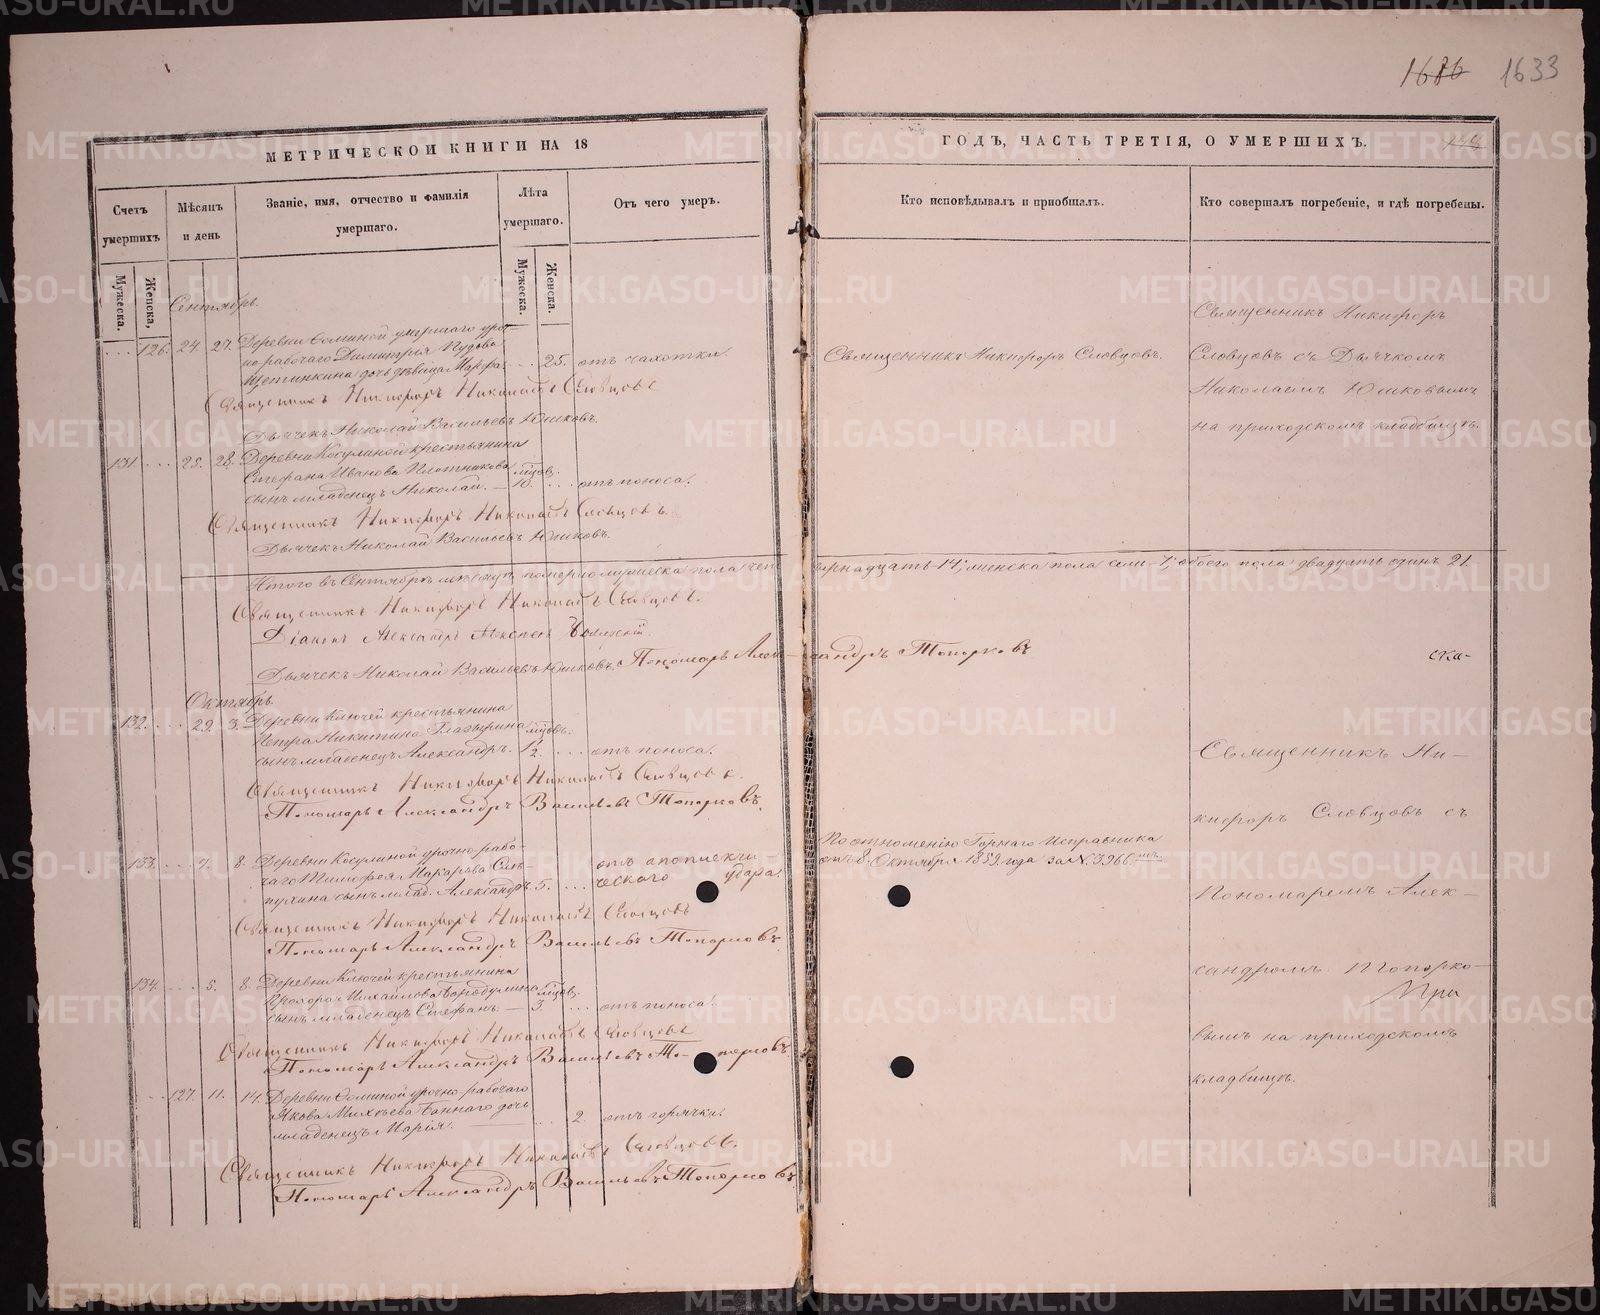 1686 1633
МЕТРИЧЕСКОЙ КНИГИ НА 18
ГОДЪ, ЧАСТЬ ТРЕТІЯ, О УМЕРШИХЪ.
Счетъ умершихъ
Мѣсяцъ и день
Званіе, имя, отчество и фамилія умершаго.
Лѣта умершаго.
Отъ чего умеръ.
Кто исповѣдывалъ и пріобщалъ.
Кто совершалъ погребеніе, и гдѣ погребены.
Мужеска.
Женска,
Мужеска.
Женска.
Сентябрь.
126. 24. 27. Деревни Соминой умершаго уроч-
но рабочаго Димитрія Пудова
Щетинкина дочь дѣвица Марфа. 25. отъ чахотки.
Священникъ Никифоръ Словцовъ.
Священникъ Никифоръ
Словцовъ съ Дьячкомъ
Николаемъ Юшковымъ
на приходскомъ кладбищѣ.
Священникъ Никифоръ Николаевъ Словцовъ
Дьячекъ Николай Васильевъ Юшковъ.
131. 25. 28. Деревни Косулиной крестьянина
Стефана Иванова Плотникова
сынъ младенецъ Николай. мѣсцов. 10. отъ поноса.
Священникъ Никифоръ Николаевъ Словцовъ.
Дьячекъ Николай Васильевъ Юшковъ.
Итого въ Сентябрѣ мѣсяцѣ померло мужеска пола четырнадцать 14, женска пола семь 7, обоего пола двадцать одинъ 21.
Священникъ Никифоръ Николаевъ Словцовъ.
Діаконъ Александръ Алексѣевъ
Дьячекъ Николай Васильевъ Юшковъ. Пономарь Александръ Топорковъ
ска-
Октябрь
132. 29. 3. Деревни Ключей крестьянина
Петра Никитина Глазырина
сынъ младенецъ Александръ. мѣсцов. 1/2. отъ поноса.
Священникъ Никифоръ Николаевъ Словцовъ.
Пономарь Александръ Васильевъ Топорковъ.
Священникъ Ни-
кифоръ Словцовъ съ
Пономаремъ Алек-
сандромъ Топорко-
вымъ на приходскомъ
кладбищѣ.
133. 7. 8. Деревни Косулиной урочно рабо-
чаго Тимофея Макарова
сынъ млад. Александръ. 5. отъ апоплекси
ческаго удара.
По отношенію Горнаго Исправника
отъ 8. Октября 1859 года за № 3966.
Священникъ Никифоръ Николаевъ Словцовъ
Пономарь Александръ Васильевъ Топорковъ
134. 5. 8. Деревни Ключей крестьянина
Прохора Михайлова
сынъ младенецъ Стефанъ. мѣсцов. 3. отъ поноса.
Священникъ Никифоръ Николаевъ Словцовъ
Пономарь Александръ Васильевъ Топорковъ
127. 11. 14. Деревни Соминой урочно рабочаго
Якова Михѣева Баннаго дочь
младенецъ Марія. 2. отъ горячки.
Священникъ Никифоръ Николаевъ Словцовъ.
Пономарь Александръ Васильевъ Топорковъ
METRIKI.GASO-URAL.RU